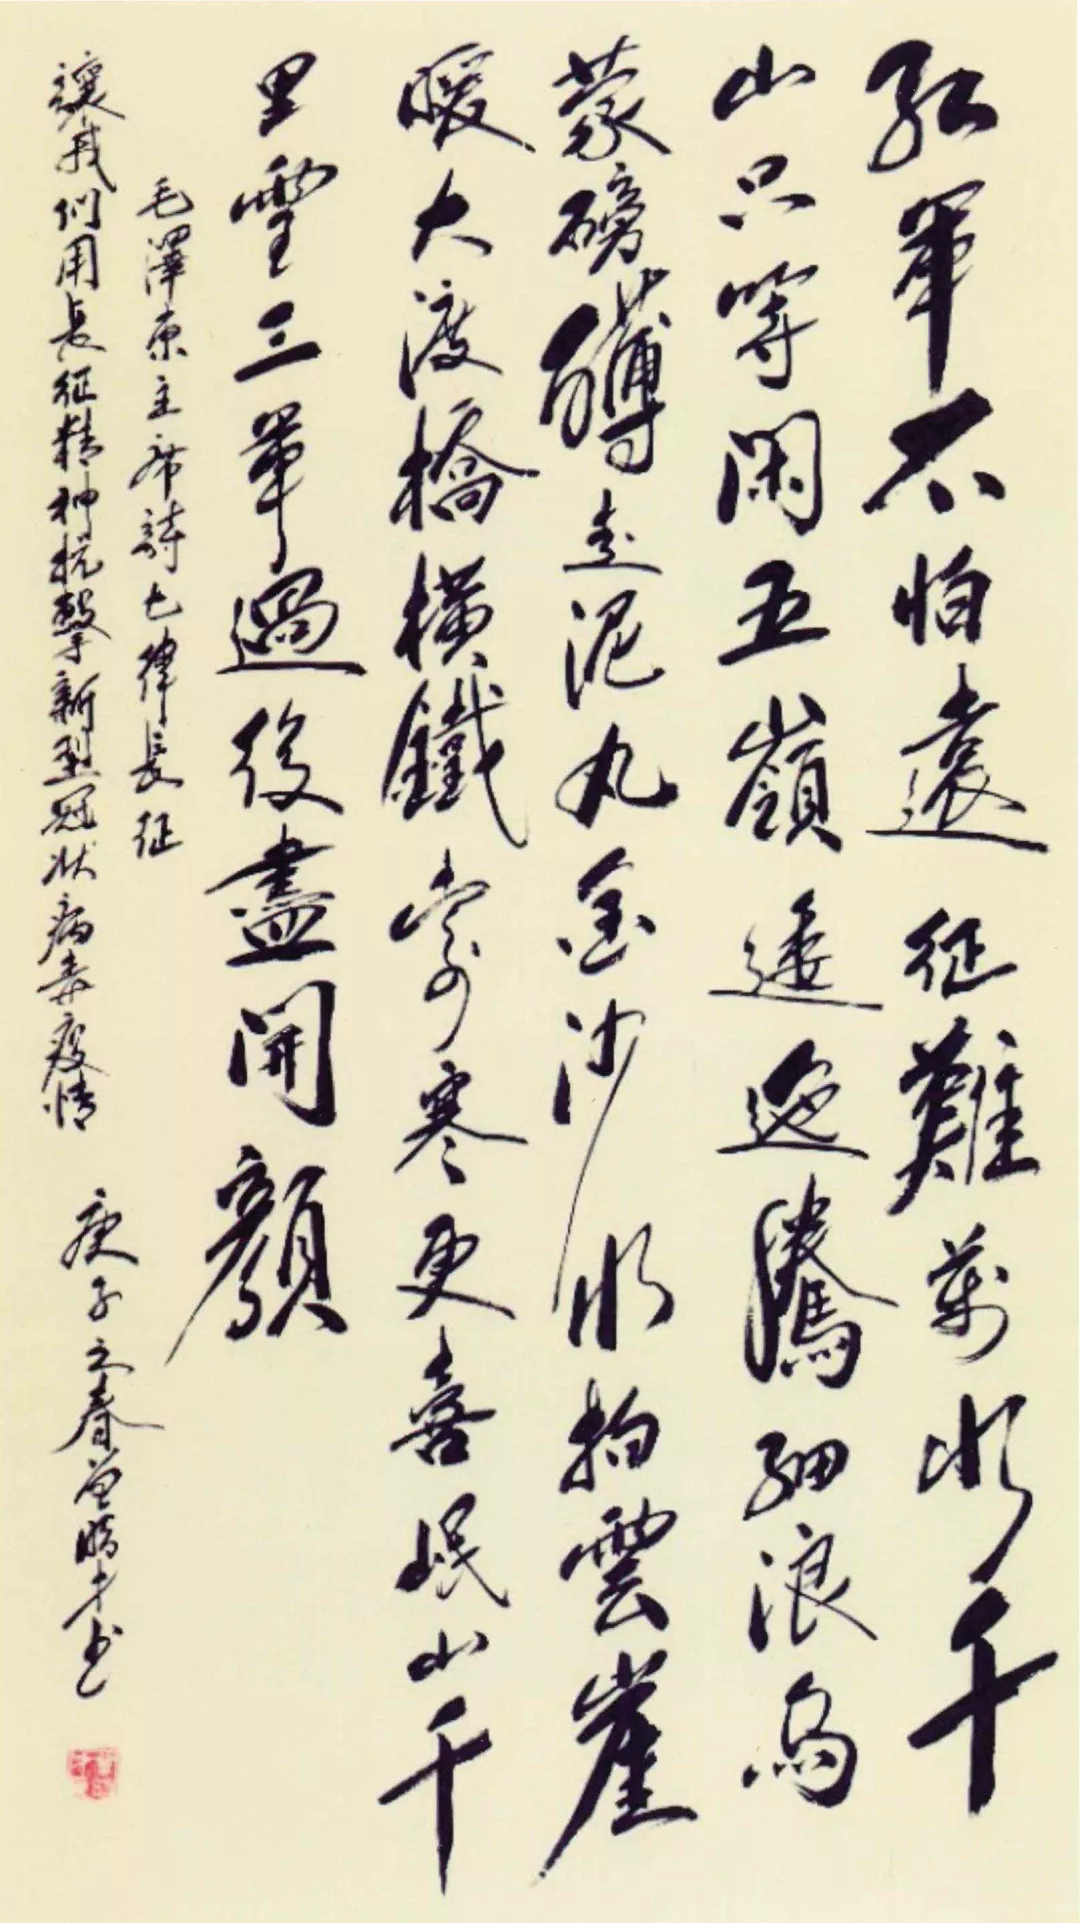 紅軍不怕遠征難萬水千
山只等閑五嶺逶迤騰細浪烏
蒙磅礴走泥丸金沙水拍雲崖
暖大渡橋橫鐵索寒更喜岷山千
里雪三軍過後盡開顏
毛澤東主席詩七律長征
讓我們用長征精神抗擊新型冠狀病毒疫情 庚子之春 書